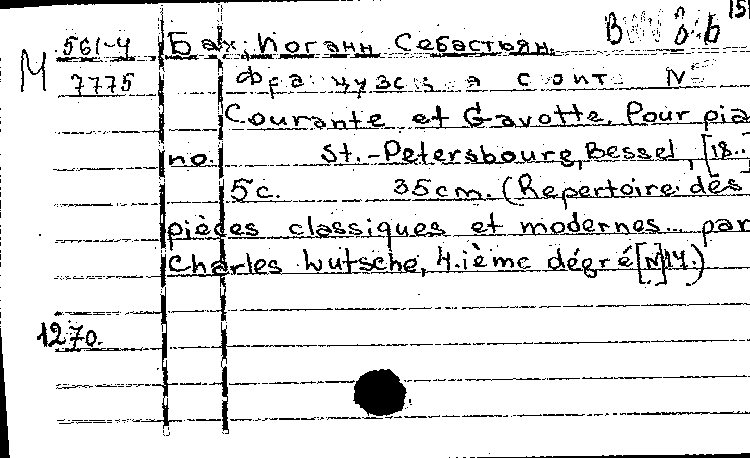 М 561-4 Бах, Иоганн Себастьян. 15
7775
Courante et Gavotte. Pour pia
no. St.-Petersbourg, Bessel, [18..
5c. 35cm. (Repertoire des
pièces classiques et modernes... par
Charles Wutsche, 4.ième dégré [N]14.)
1270.